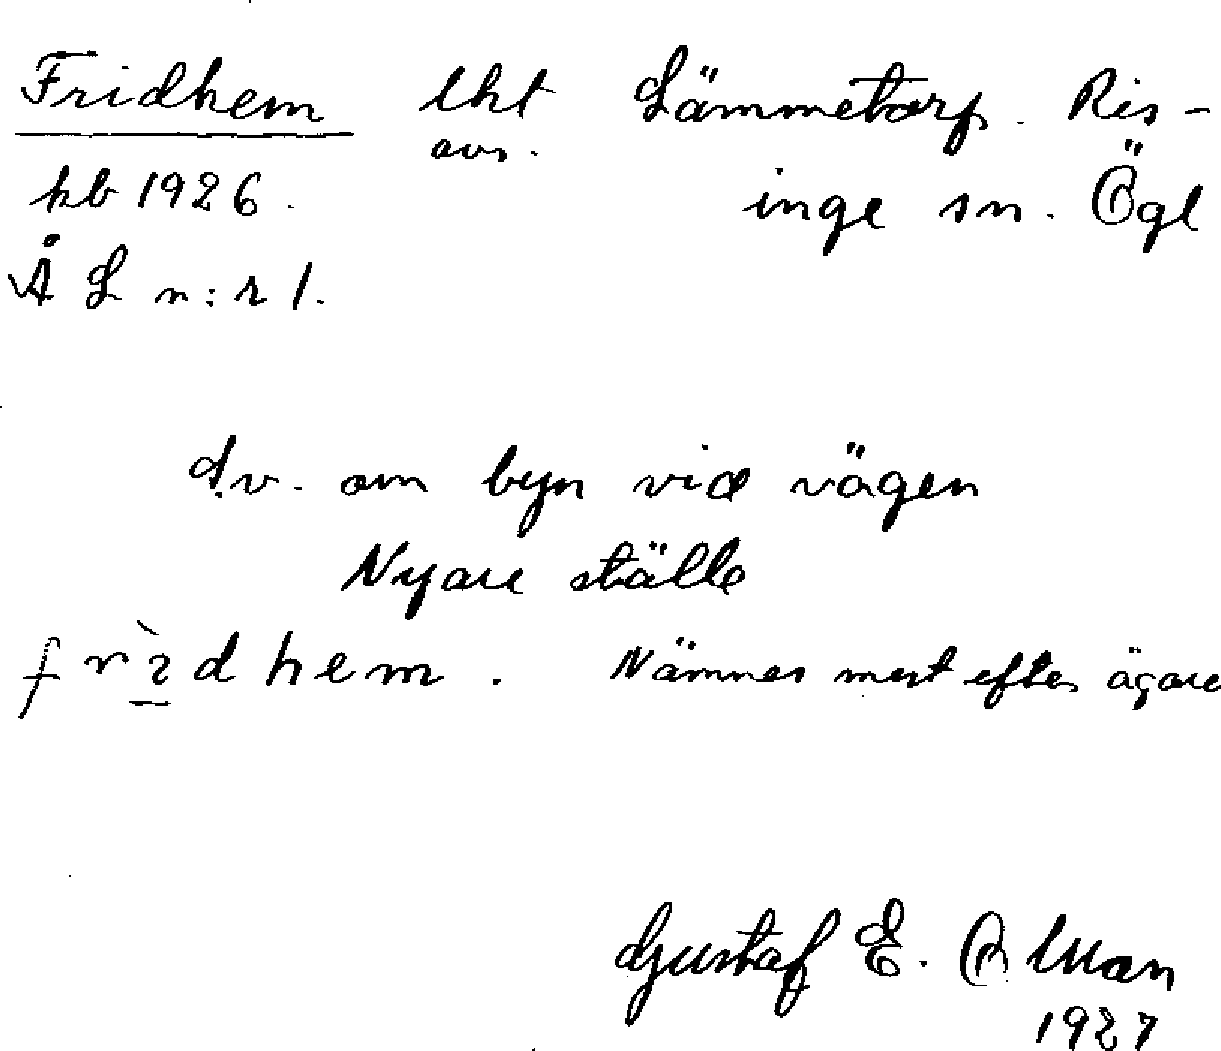 Fridhem lht Lämmetorp. Ris-
avs.
kb 1926. inge sn. Ögl
ÅL n:r 1.
S.v. om byn vid vägen
Nyare ställe
hem. Nämnes mest efter ägare
Gustaf E.
1927